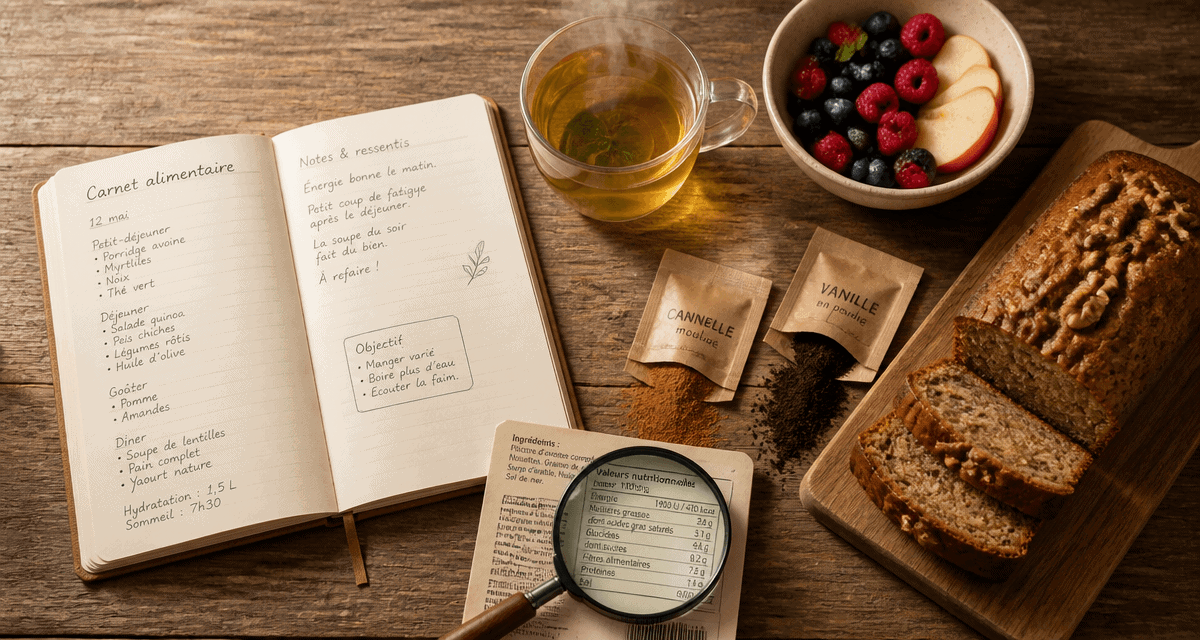 Carnet alimentaire
12 mai
Petit-déjeuner
• Porridge avoine
• Myrtilles
• Noix
• Thé vert
Déjeuner
• Salade quinoa
• Pois chiches
• Légumes rôtis
• Huile d'olive
Goûter
• Pomme
• Amandes
Dîner
• Soupe de lentilles
• Pain complet
• Yaourt nature
Hydratation : 1,5 L
Sommeil : 7h30
Notes & ressentis
Énergie bonne le matin.
Petit coup de fatigue
après le déjeuner.
La soupe du soir
fait du bien.
À refaire !
Objectif
• Manger varié
• Boire plus d'eau
• Écouter la faim.
CANNELLE
moulue
VANILLE
en poudre
Ingrédients :
Sel de mer.
Valeurs nutritionnelles
Énergie
Glucides
Fibres alimentaires
Protéines